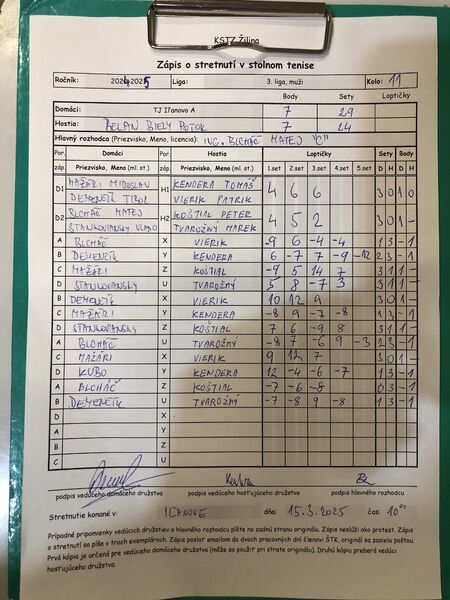 KSTZ Žilina
Zápis o stretnutí v stolnom tenise
Ročník: 2024 2025 Liga: 3. liga, muži Kolo: 11
Body Sety Loptičky
Domáci: TJ Iľanovo A 7 29
Hostia: BELAN BIELY POTOK 7 24
Hlavný rozhodca (Priezvisko, Meno, licencia): ING. BLCHÁČ MATEJ "C"
Por. Domáci Por. Hostia Loptičky Sety Body
záp. Priezvisko, Meno (ml. st.) záp. Priezvisko, Meno (ml. st.) 1.set 2.set 3.set 4.set 5.set D H D H
D1 MAŽÁRI MIROSLAV H1 KENDERA TOMÁŠ 4 6 6 3 0 1 0
DEMENČÍK TIBOR VIERIK PATRIK
D2 BLCHÁČ MATEJ H2 KOŠTIAL PETER 4 5 2 3 0 1 -
STANKOVIANSKY VLADO TVAROŽNÝ MAREK
A BLCHÁČ X VIERIK -9 6 -4 -4 1 3 - 1
B DEMENČÍK Y KENDERA 6 -7 7 -9 -12 2 3 - 1
C MAŽÁRI Z KOŠTIAL -9 5 14 7 3 1 1 -
D STANKOVIANSKY U TVAROŽNÝ 5 8 -7 3 3 1 1 -
B DEMENČÍK X VIERIK 10 12 9 3 0 1 -
C MAŽÁRI Y KENDERA -8 9 -7 -8 1 3 - 1
D STANKOVIANSKY Z KOŠTIAL 7 6 -9 8 3 1 1 -
A BLCHÁČ U TVAROŽNÝ -8 7 -6 9 -3 2 3 - 1
C MAŽÁRI X VIERIK 9 12 7 3 0 1 -
D KUBO Y KENDERA 12 -4 -6 -7 1 3 - 1
A BLCHÁČ Z KOŠTIAL -7 -6 -8 0 3 - 1
B DEMENČÍK U TVAROŽNÝ -7 -8 9 -8 1 3 - 1
D X
A Y
B Z
C U
podpis vedúceho domáceho družstva podpis vedúceho hosťujúceho družstva podpis hlavného rozhodcu
Stretnutie konané v: IĽANOVE dňa: 15.3.2025 čas: 10⁰⁰
Prípadné pripomienky vedúcich družstiev a hlavného rozhodcu píšte na zadnú stranu originálu. Zápis neslúži ako protest. Zápis
o stretnutí sa píše v troch exemplároch. Zápis poslať emailom do dvoch pracovných dní členovi ŠTK, originál sa zasiela poštou.
Prvá kópia je určená pre vedúceho domáceho družstva (môže sa použiť pri strate originálu). Druhú kópiu preberá vedúci
hosťujúceho družstva.